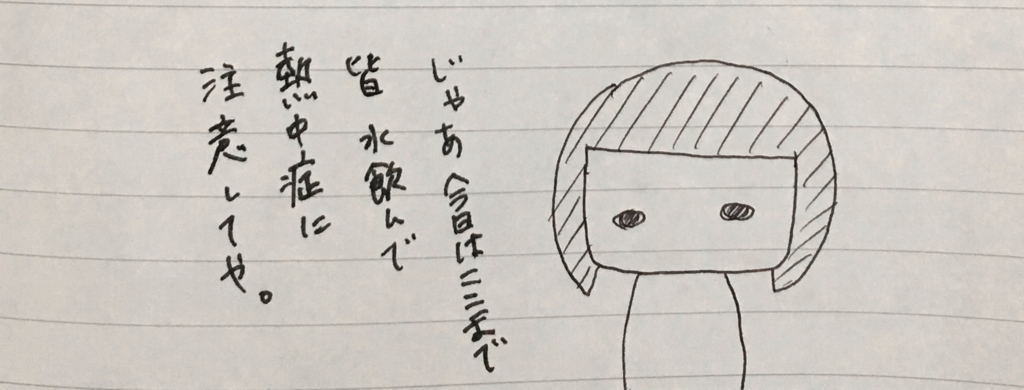 じゃあ今日はここまで
皆 水飲んで
熱中症に
注意してや。